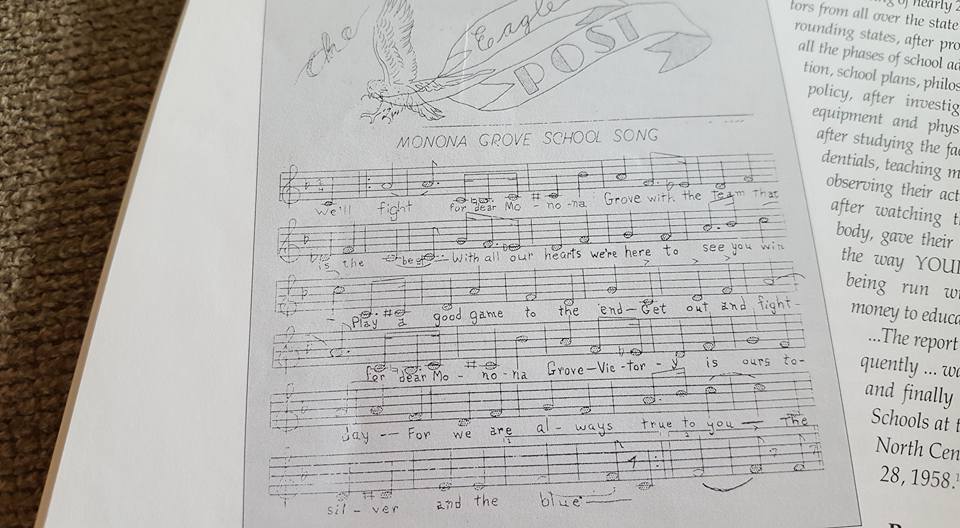 the Eagle
POST
MONONA GROVE SCHOOL SONG
We'll fight for dear Mo - no - na Grove with the team that
is the best -- With all our hearts we're here to see you win
Play a good game to the end - Get out and fight -
for dear Mo - no - na Grove - Vic - tor - y is ours to -
day -- For we are al - ways true to you — The
sil - ver and the blue
of nearly
tors from all over the state
rounding states, after
all the phases of school
tion, school plans,
policy, after
equipment and
after studying the
dentials, teaching
observing their
after watching
body, gave their
the way
being run
money to
...The report
quently ...
and finally
Schools at
North
28, 1958.